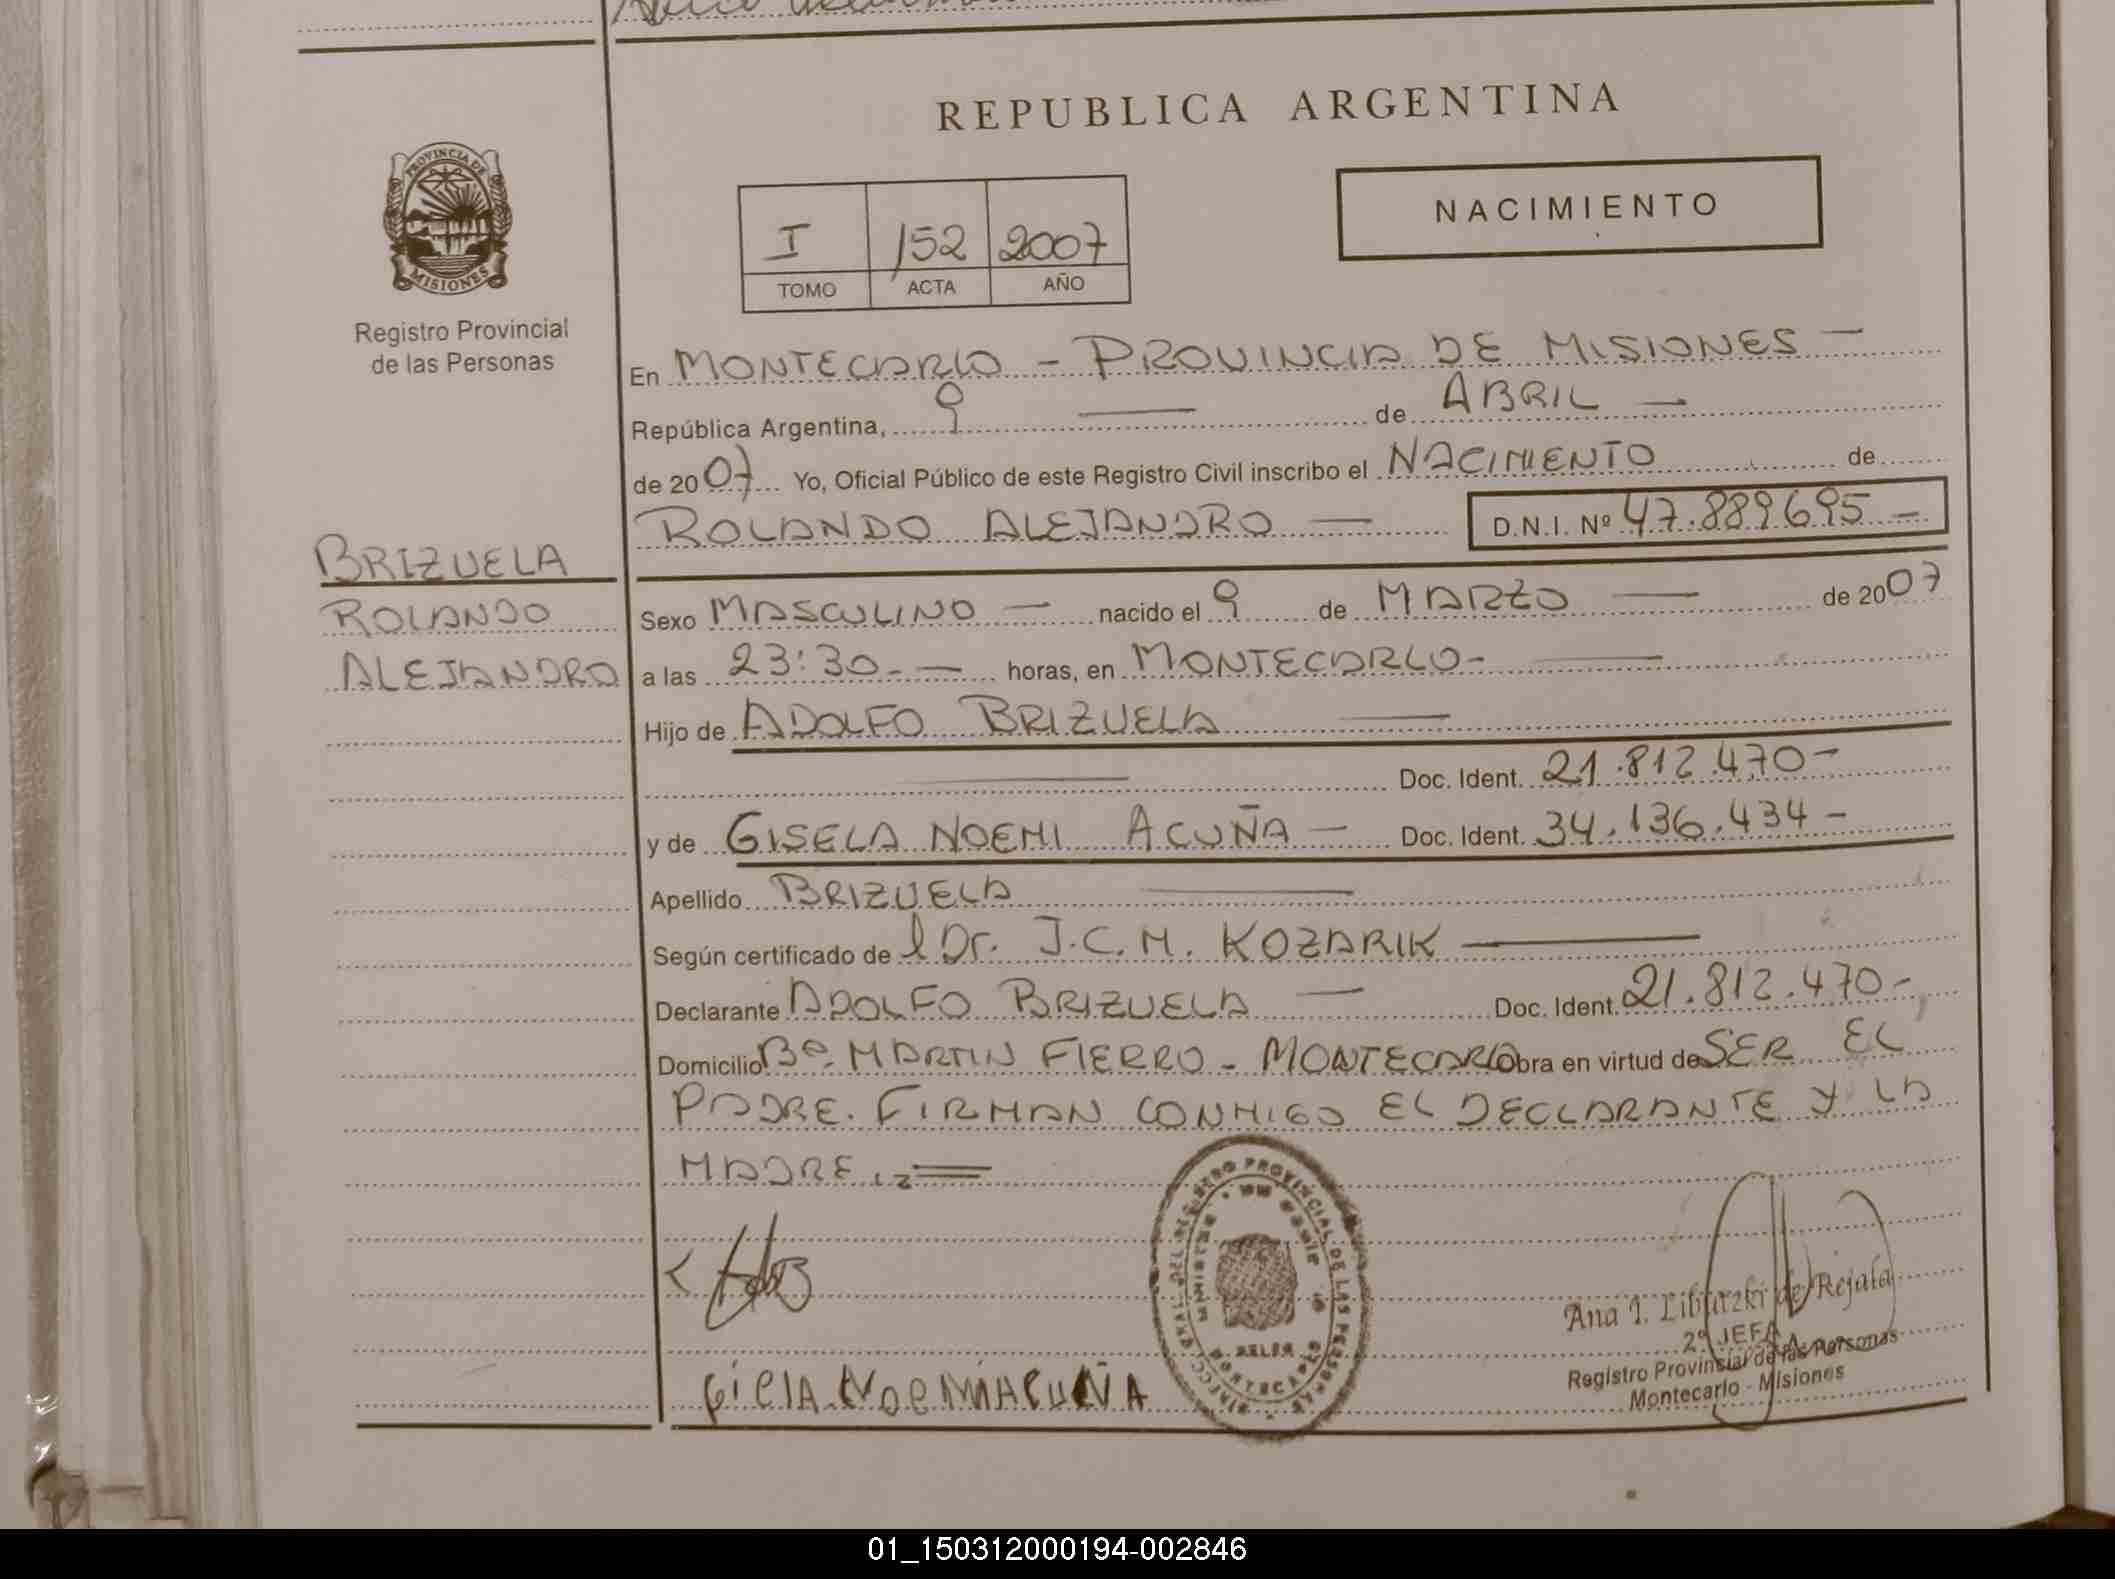 REPUBLICA ARGENTINA
PROVINCIA DE
MISIONES
Registro Provincial
de las Personas
NACIMIENTO
I 152 2007
TOMO ACTA AÑO
En MONTECARLO - PROVINCIA DE MISIONES —
República Argentina, 9 — de ABRIL —
de 2007 Yo, Oficial Público de este Registro Civil inscribo el NACIMIENTO de
ROLANDO ALEJANDRO — D.N.I. Nº 47.889.695 —
BRIZUELA
ROLANDO
ALEJANDRO
Sexo MASCULINO — nacido el 9 de MARZO — de 2007
a las 23:30 - — horas, en MONTECARLO - —
Hijo de ADOLFO BRIZUELA —
— Doc. Ident. 21.812.470 -
y de GISELA NOEMI ACUÑA — Doc. Ident. 34.136.434 -
Apellido BRIZUELA —
Según certificado de l Dr. J.C.M. KOZARIK —
Declarante ADOLFO BRIZUELA — Doc. Ident. 21.812.470 -
Domicilio Bº. MARTIN FIERRO - MONTECARLO obra en virtud de SER EL
PADRE. FIRMAN CONMIGO EL DECLARANTE Y LA
MADRE.
REGISTRO PROVINCIAL DE LAS PERSONAS
MONTECARLO
Ana I. Libutzki de Rejala
2º JEFA
Registro Provincial de las Personas
Montecarlo - Misiones
01_150312000194-002846